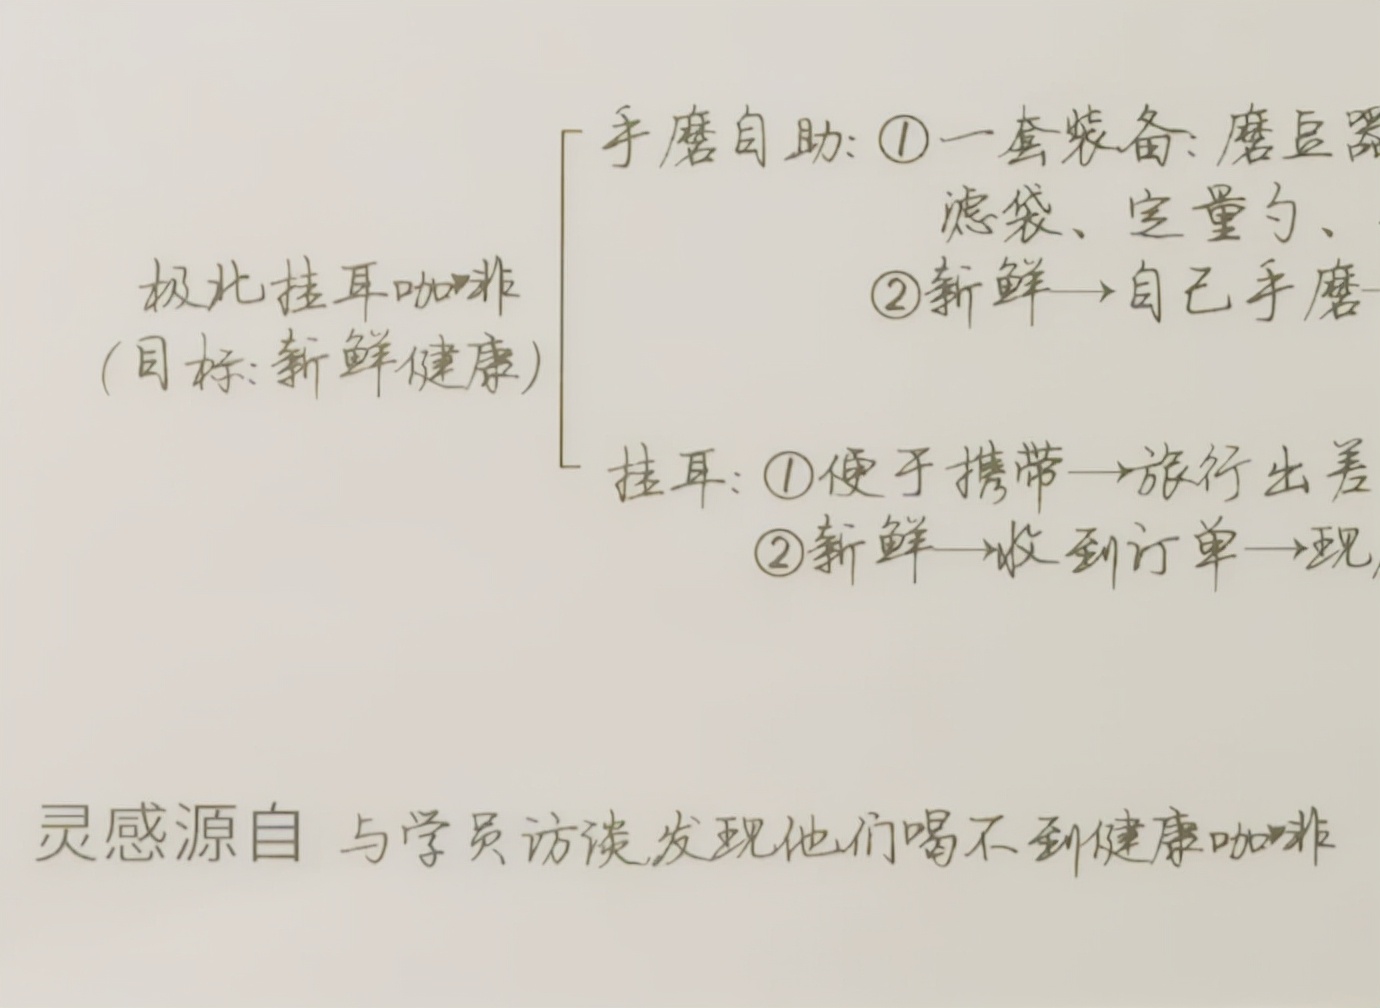 手磨自助:①一套装备:磨豆器
滤袋、定量勺、
②新鲜→自己手磨→
极北挂耳咖啡
(目标:新鲜健康)
挂耳:①便于携带→旅行出差
②新鲜→收到订单→现
灵感源自 与学员访谈发现他们喝不到健康咖啡